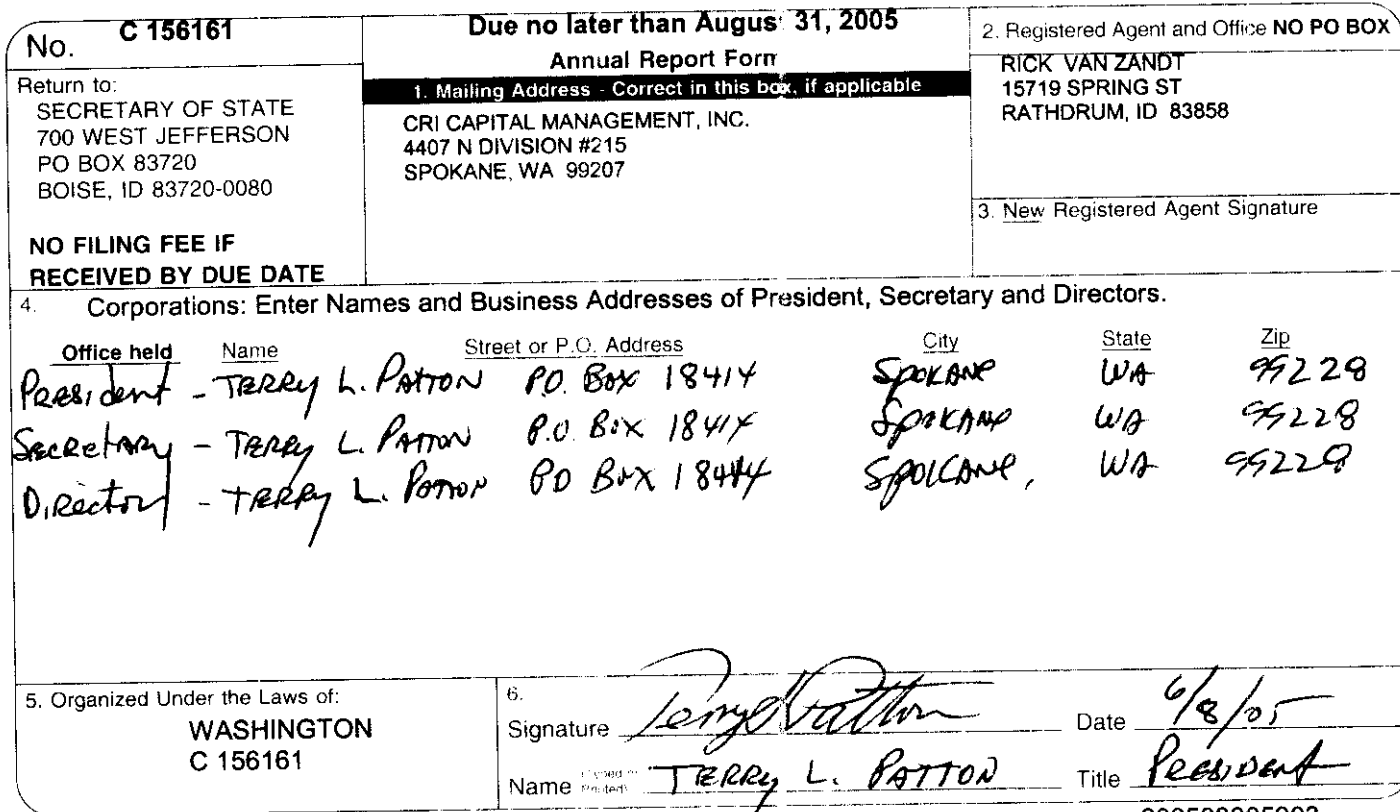 No. C 156161
Return to:
SECRETARY OF STATE
700 WEST JEFFERSON
PO BOX 83720
BOISE, ID 83720-0080
NO FILING FEE IF
RECEIVED BY DUE DATE
Due no later than Augus 31, 2005
Annual Report Form
1. Mailing Address - Correct in this box, if applicable
CRI CAPITAL MANAGEMENT, INC.
4407 N DIVISION #215
SPOKANE, WA 99207
2. Registered Agent and Office NO PO BOX
RICK VAN ZANDT
15719 SPRING ST
RATHDRUM, ID 83858
3. New Registered Agent Signature
4. Corporations: Enter Names and Business Addresses of President, Secretary and Directors.
Office held Name Street or P.O. Address City State Zip
President - TERRY L. PATTON P.O. Box 18414 SPOKANE WA 99228
Secretary - TERRY L. PATTON P.O. Box 18414 SPOKANE WA 99228
Director - TERRY L. PATTON PO Box 18414 SPOKANE, WA 99228
5. Organized Under the Laws of:
WASHINGTON
C 156161
6.
Signature Terry L Patton Date 6/8/05
Name TERRY L. PATTON Title PRESIDENT